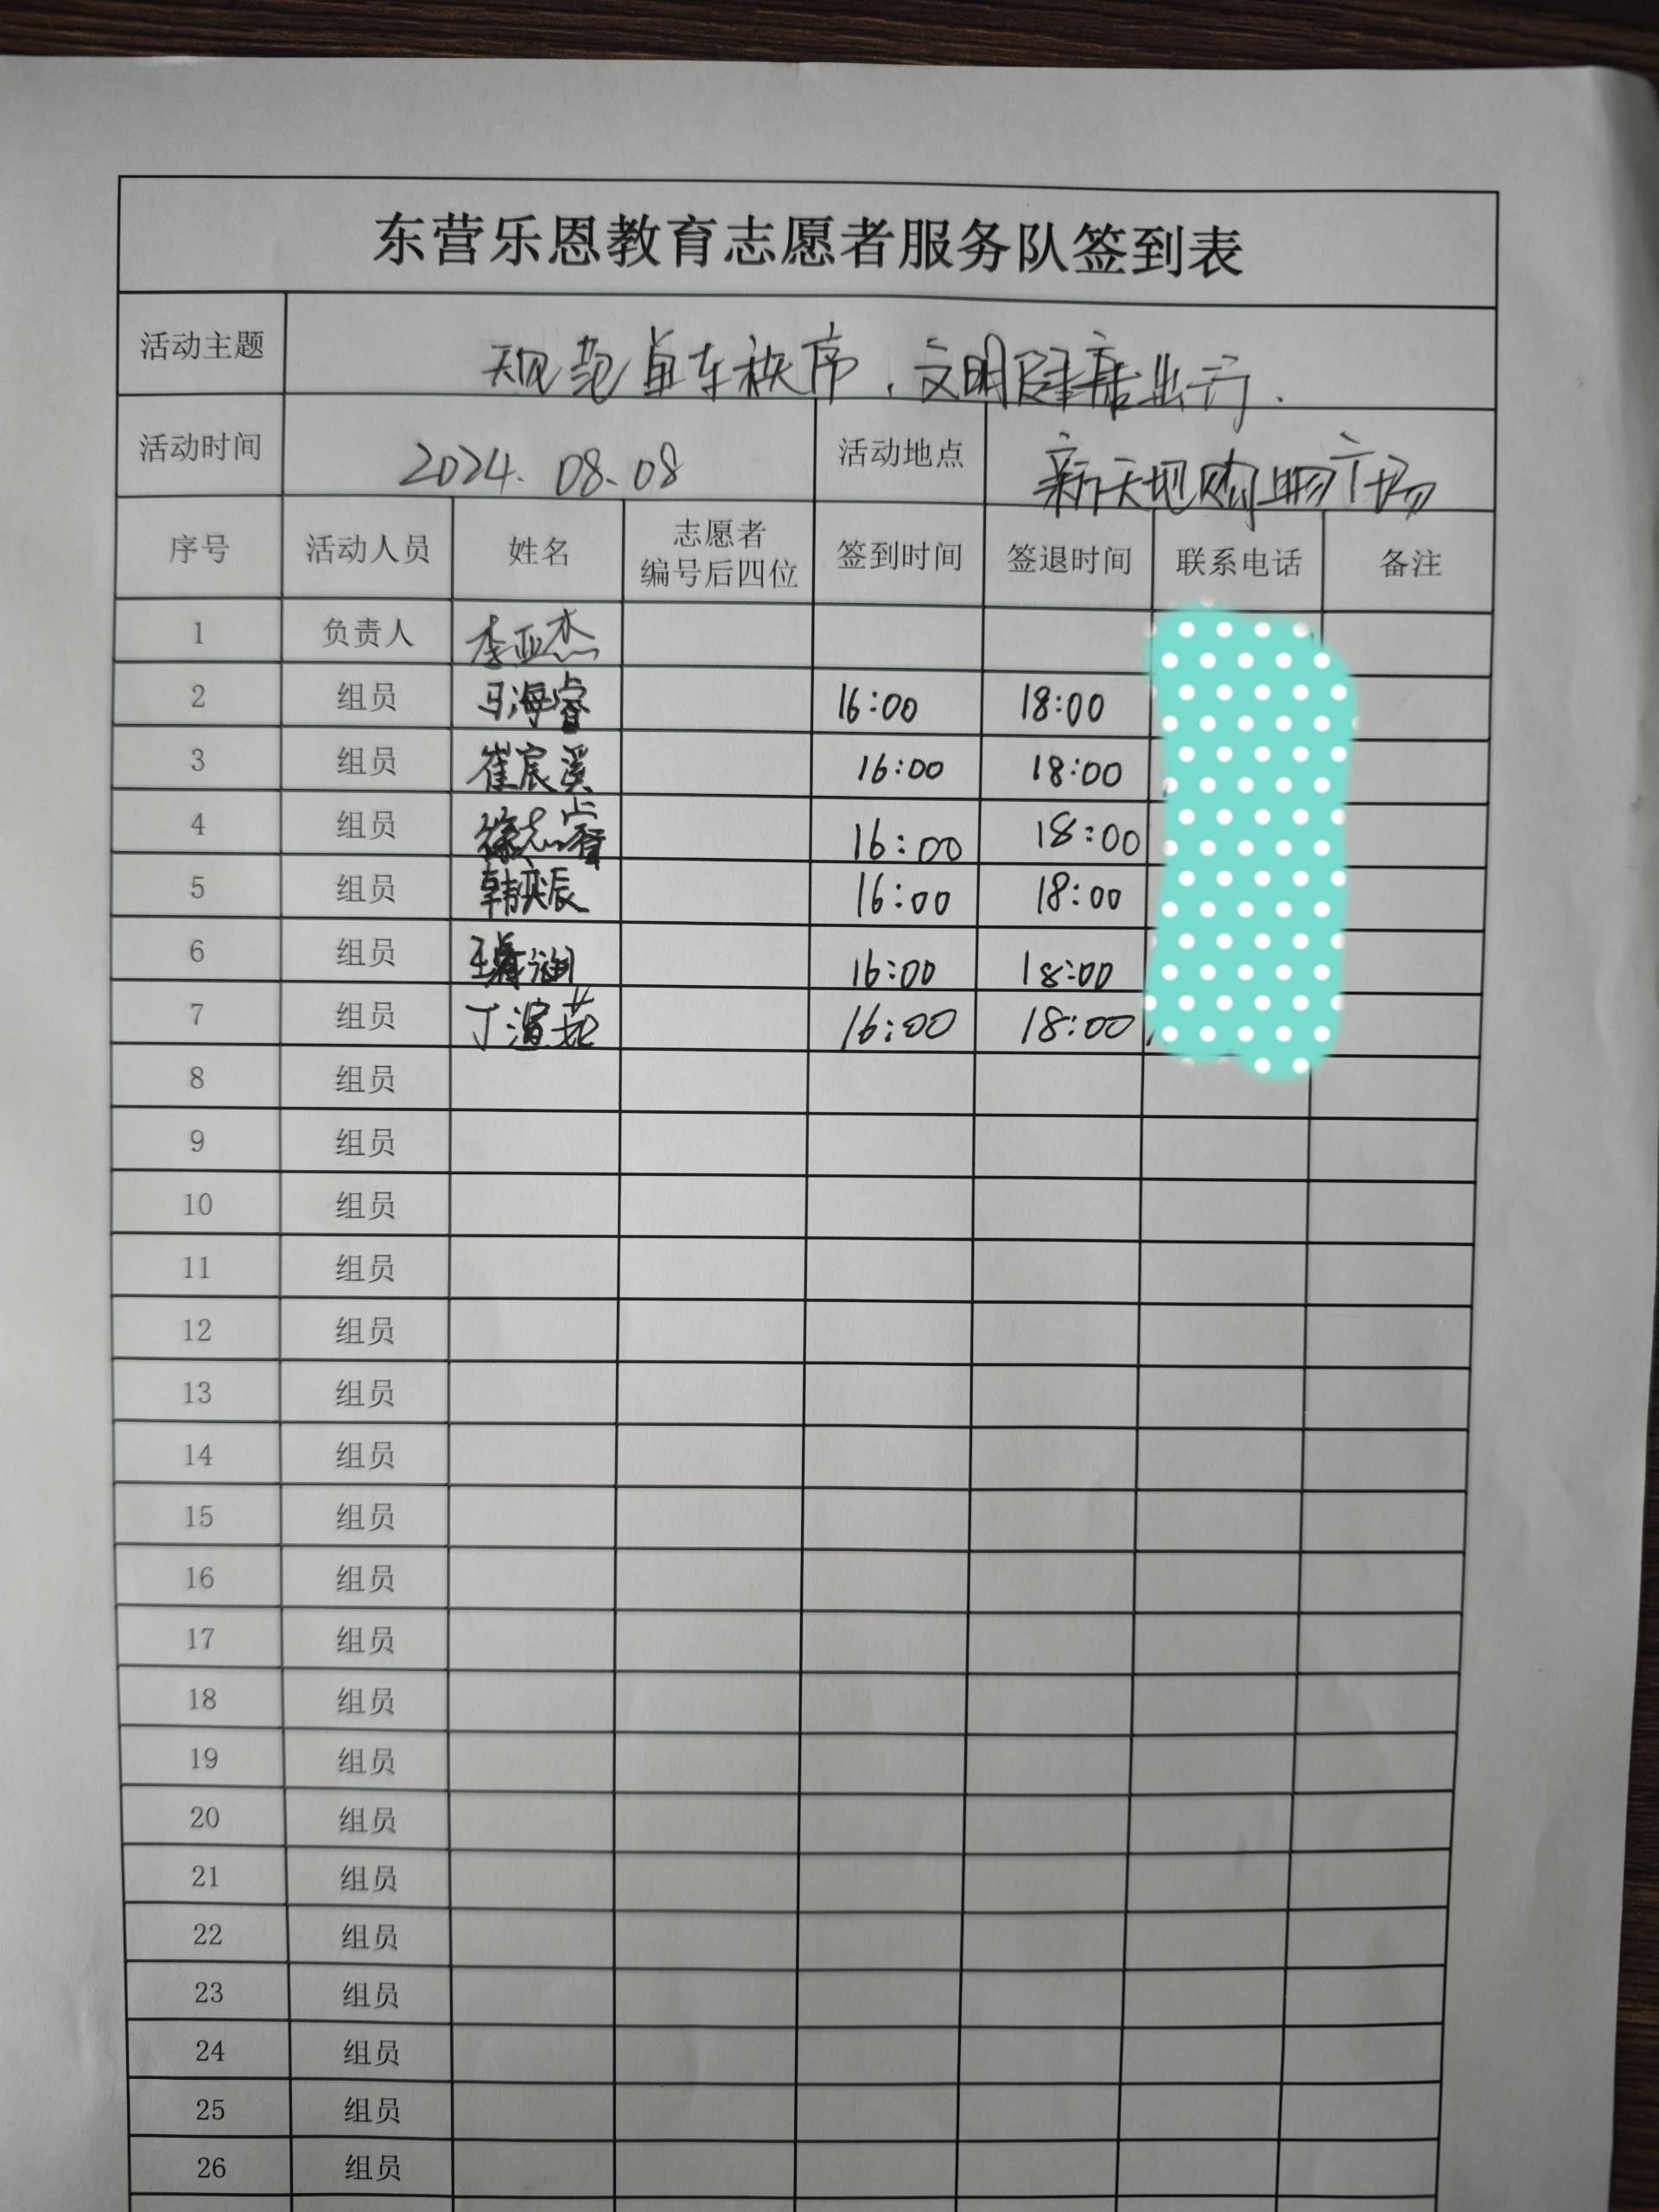 东营乐恩教育志愿者服务队签到表
活动主题 规范单车秩序，文明健康出行.
活动时间 2024.08.08 活动地点 新天地购物广场
序号 活动人员 姓名 志愿者编号后四位 签到时间 签退时间 联系电话 备注
1 负责人 李亚杰
2 组员 马海睿 16:00 18:00
3 组员 崔宸溪 16:00 18:00
4 组员 徐志睿 16:00 18:00
5 组员 韩奕辰 16:00 18:00
6 组员 16:00 18:00
7 组员 16:00 18:00
8 组员
9 组员
10 组员
11 组员
12 组员
13 组员
14 组员
15 组员
16 组员
17 组员
18 组员
19 组员
20 组员
21 组员
22 组员
23 组员
24 组员
25 组员
26 组员